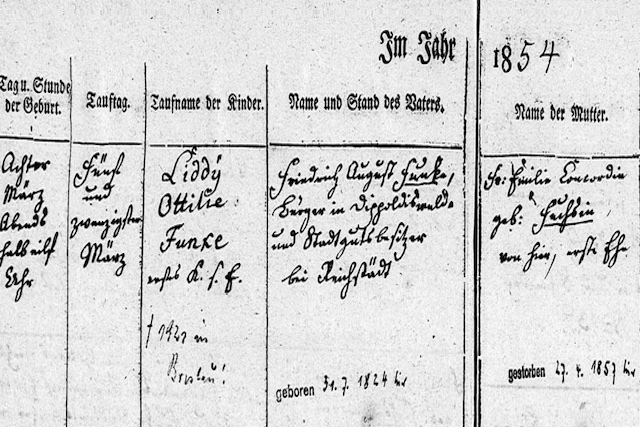 Im Jahr 1854
Tag u. Stunde
der Geburt.
Tauftag.
Taufname der Kinder.
Name und Stand des Vaters.
Name der Mutter.
Achter
März
Abends
halb eilf
Uhr
Fünf
und
zwanzigster
März
Liddy
Ottilie
Funke
erstes K. s. E.
† 1921 in
Breslau!
Friedrich August Funke,
Bürger in Dippoldiswalde
und Stadtgutsbesitzer
bei Reichstädt
geboren 31. 7. 1824
Fr. Emilie Concordie
geb:
von hier, erste Ehe
gestorben 27. 4. 1857